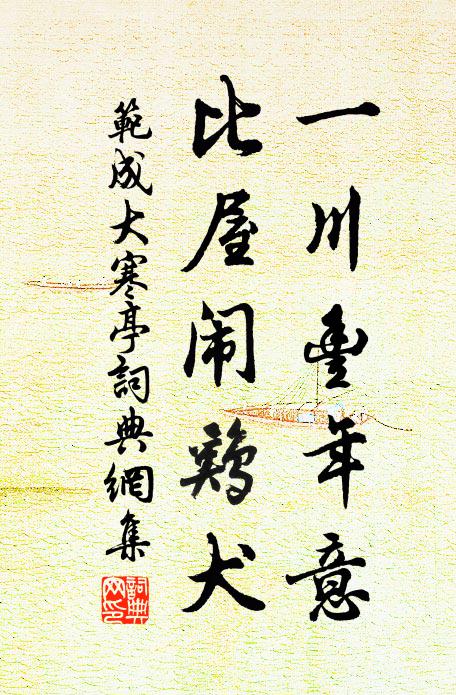 一川豊年意
比屋闹鷄犬
範成大寒亭詞典網集
詞典
文印